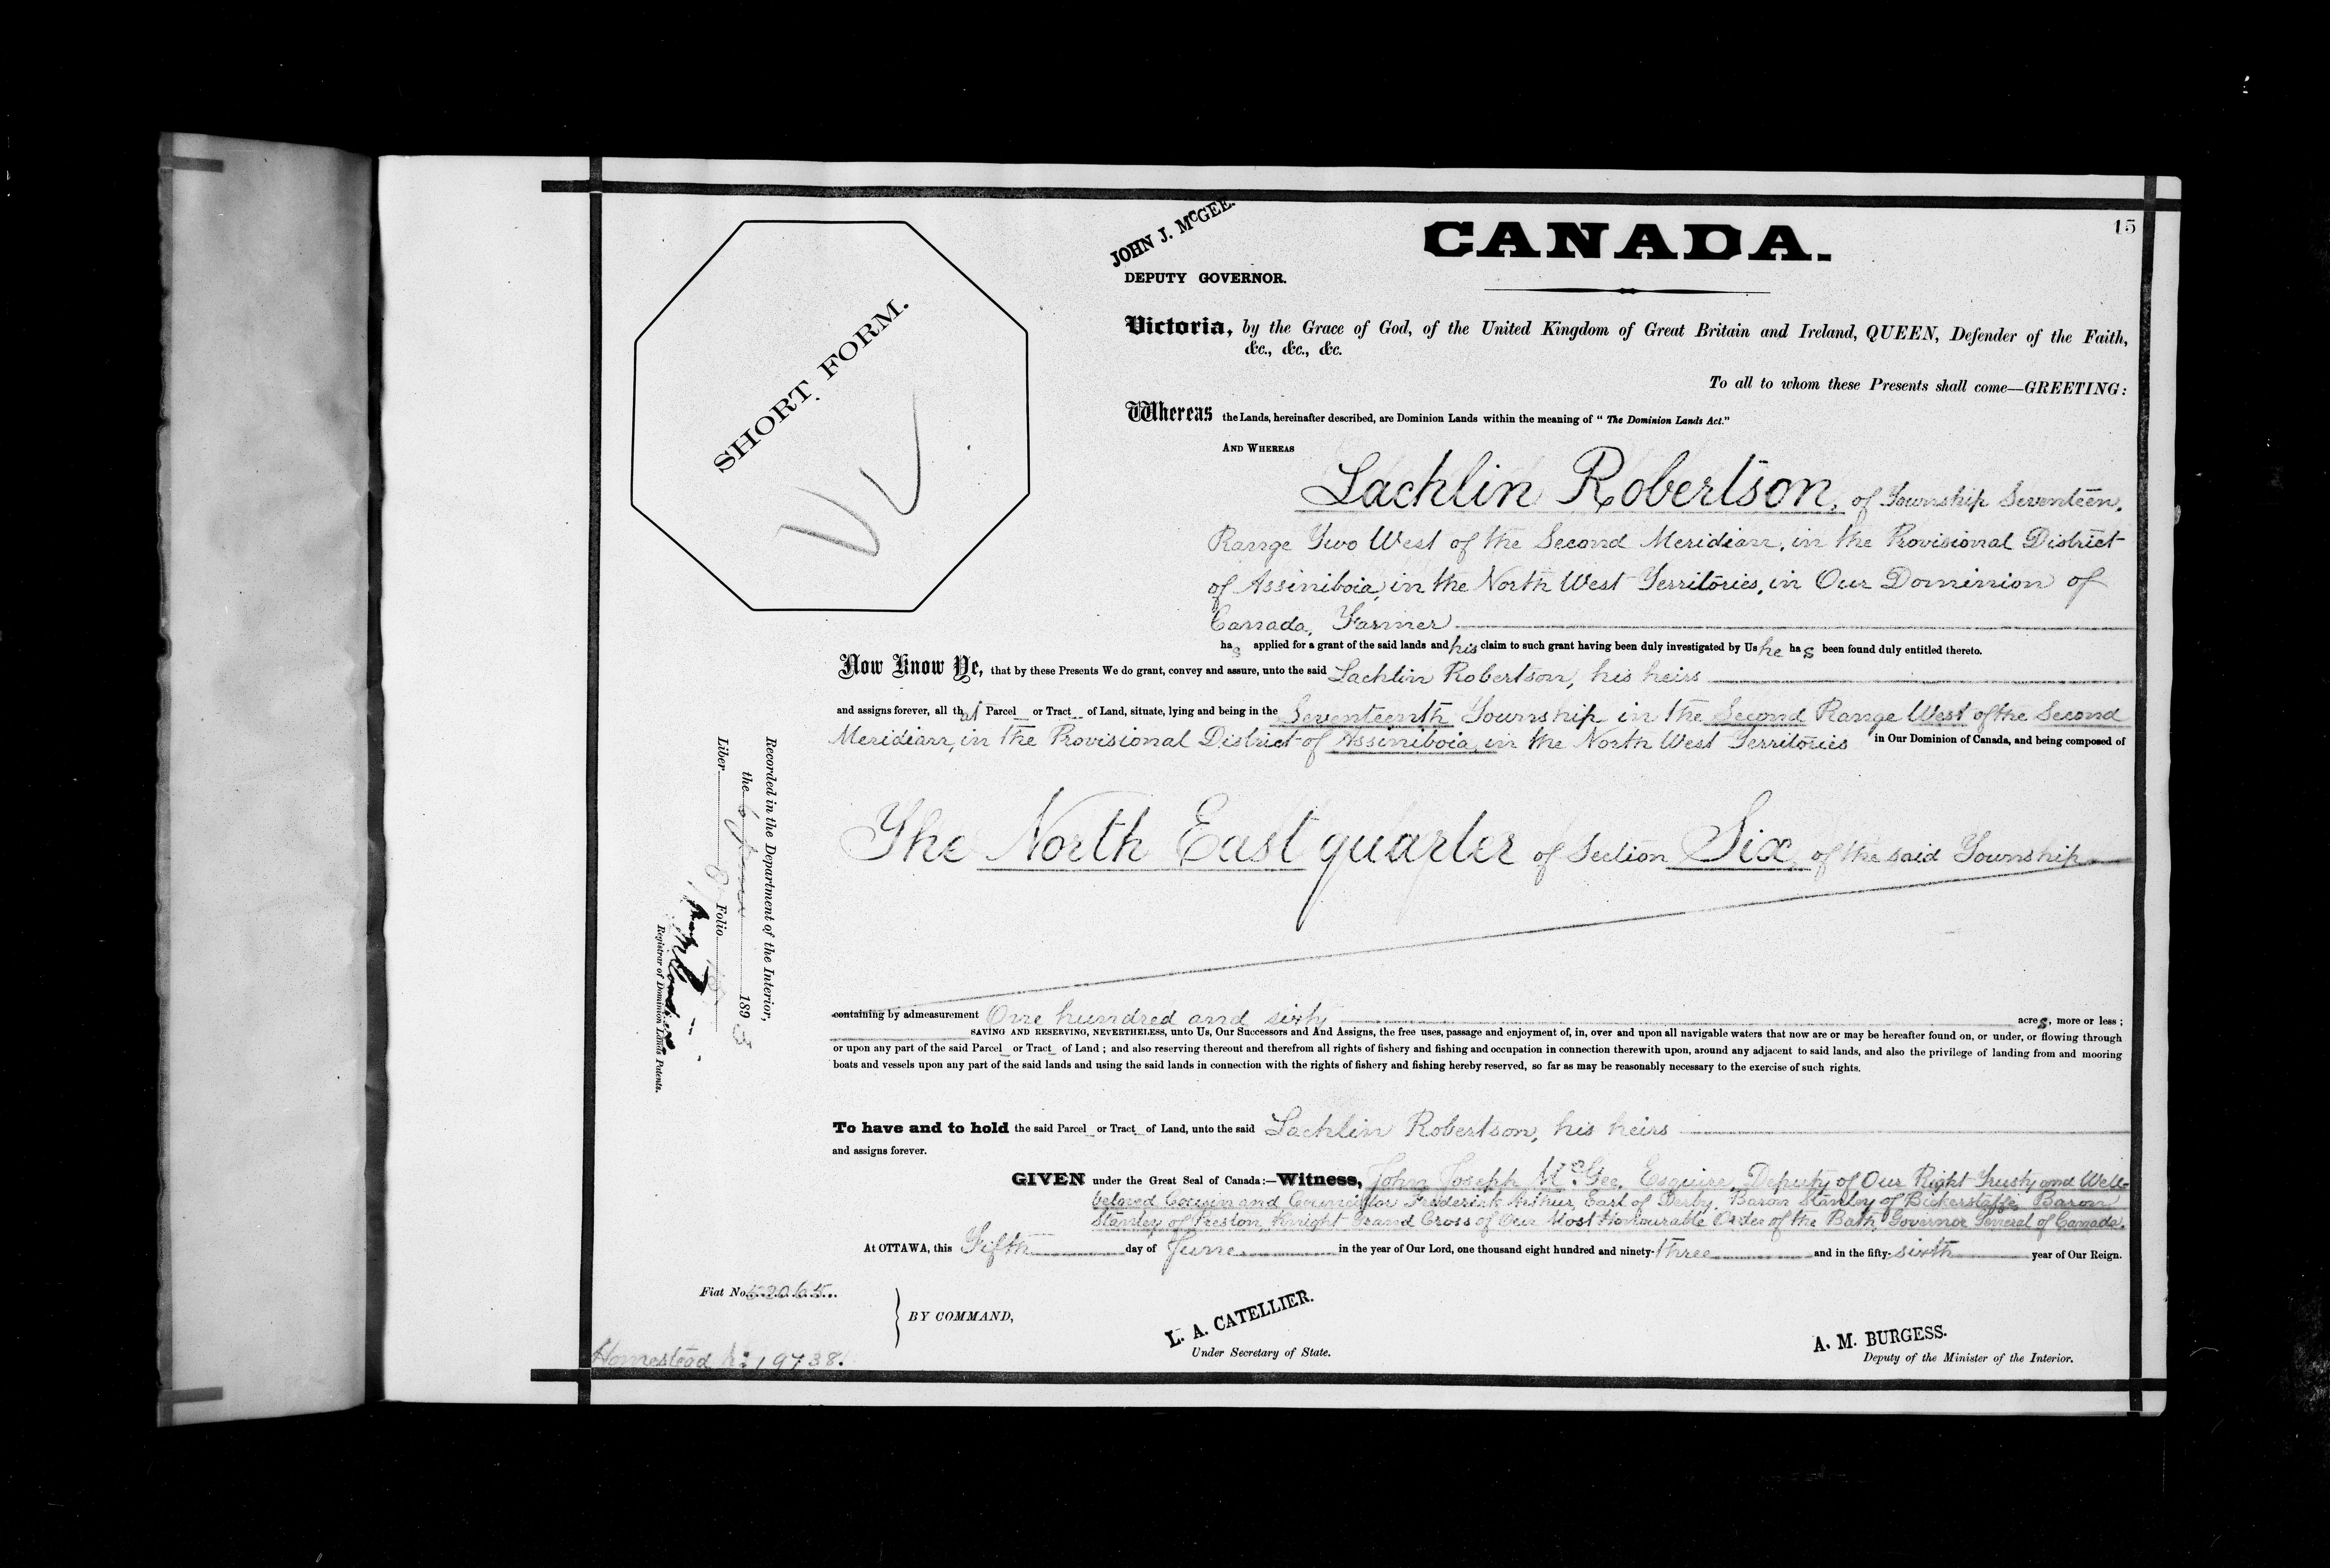 15
JOHN J. McGEE.
DEPUTY GOVERNOR.
CANADA.
SHORT FORM.
Victoria, by the Grace of God, of the United Kingdom of Great Britain and Ireland, QUEEN, Defender of the Faith,
&c., &c., &c.
To all to whom these Presents shall come—GREETING:
Whereas the Lands, hereinafter described, are Dominion Lands within the meaning of "The Dominion Lands Act."
AND WHEREAS
Lachlin Robertson, of Township Seventeen,
Range Two West of the Second Meridian, in the Provisional District
of Assiniboia, in the North West Territories, in Our Dominion of
Canada, Farmer
has applied for a grant of the said lands and his claim to such grant having been duly investigated by Us he has been found duly entitled thereto.
Now Know Ye, that by these Presents We do grant, convey and assure, unto the said Lachlin Robertson, his heirs
and assigns forever, all that Parcel or Tract of Land, situate, lying and being in the Seventeenth Township in the Second Range West of the Second
Meridian, in the Provisional District of Assiniboia, in the North West Territories in Our Dominion of Canada, and being composed of
The North East quarter of Section Six, of the said Township
containing by admeasurement One hundred and sixty acres, more or less;
SAVING AND RESERVING, NEVERTHELESS, unto Us, Our Successors and And Assigns, the free uses, passage and enjoyment of, in, over and upon all navigable waters that now are or may be hereafter found on, or under, or flowing through
or upon any part of the said Parcel or Tract of Land; and also reserving thereout and therefrom all rights of fishery and fishing and occupation in connection therewith upon, around any adjacent to said lands, and also the privilege of landing from and mooring
boats and vessels upon any part of the said lands and using the said lands in connection with the rights of fishery and fishing hereby reserved, so far as may be reasonably necessary to the exercise of such rights.
To have and to hold the said Parcel or Tract of Land, unto the said Lachlin Robertson, his heirs
and assigns forever.
GIVEN under the Great Seal of Canada:—Witness, John Joseph McGee, Esquire, Deputy of Our Right Trusty and Well-
beloved Cousin and Councillor Frederick Arthur, Earl of Derby, Baron Stanley of Bickerstaffe, Baron
Stanley of Preston, Knight Grand Cross of Our Most Honourable Order of the Bath, Governor General of Canada.
At OTTAWA, this Fifth day of June in the year of Our Lord, one thousand eight hundred and ninety-three and in the fifty-sixth year of Our Reign.
Recorded in the Department of the Interior,
the 6 June 1893
Liber Folio
Registrar of Dominion Lands Patents.
Fiat No. 52065
BY COMMAND,
L. A. CATELLIER.
Under Secretary of State.
A. M. BURGESS.
Deputy of the Minister of the Interior.
Homestead No 19738.